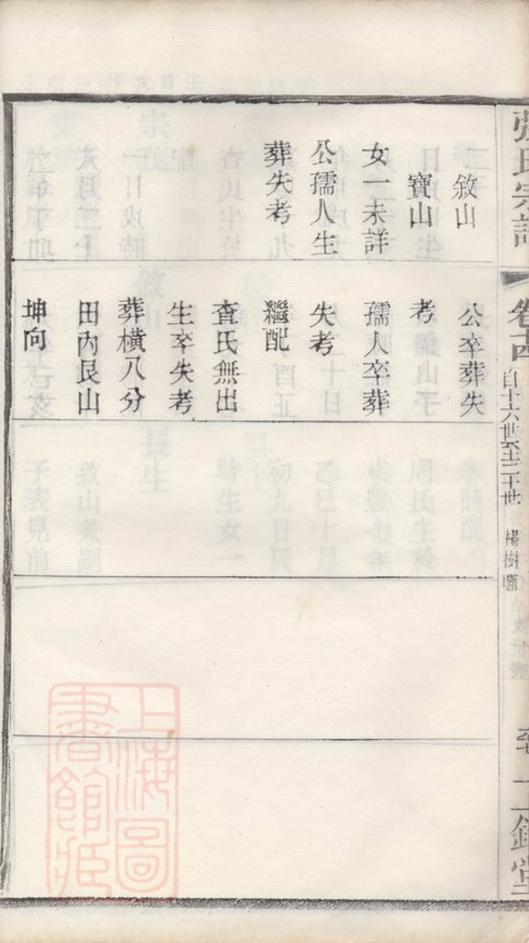 張氏宗譜
自十六世至二十世
敘山
寶山
女一未詳
公孺人生
葬失考
公卒葬失
考
孺人卒葬
失考
繼配
查氏無出
生卒失考
葬橫八分
田內艮山
坤向
上海圖
書館藏